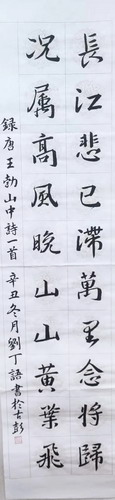 長江悲已滯萬里念將歸
况属高風晚山山黄葉飛
録唐王勃山中詩一首 辛丑冬月劉丁語書於古彭